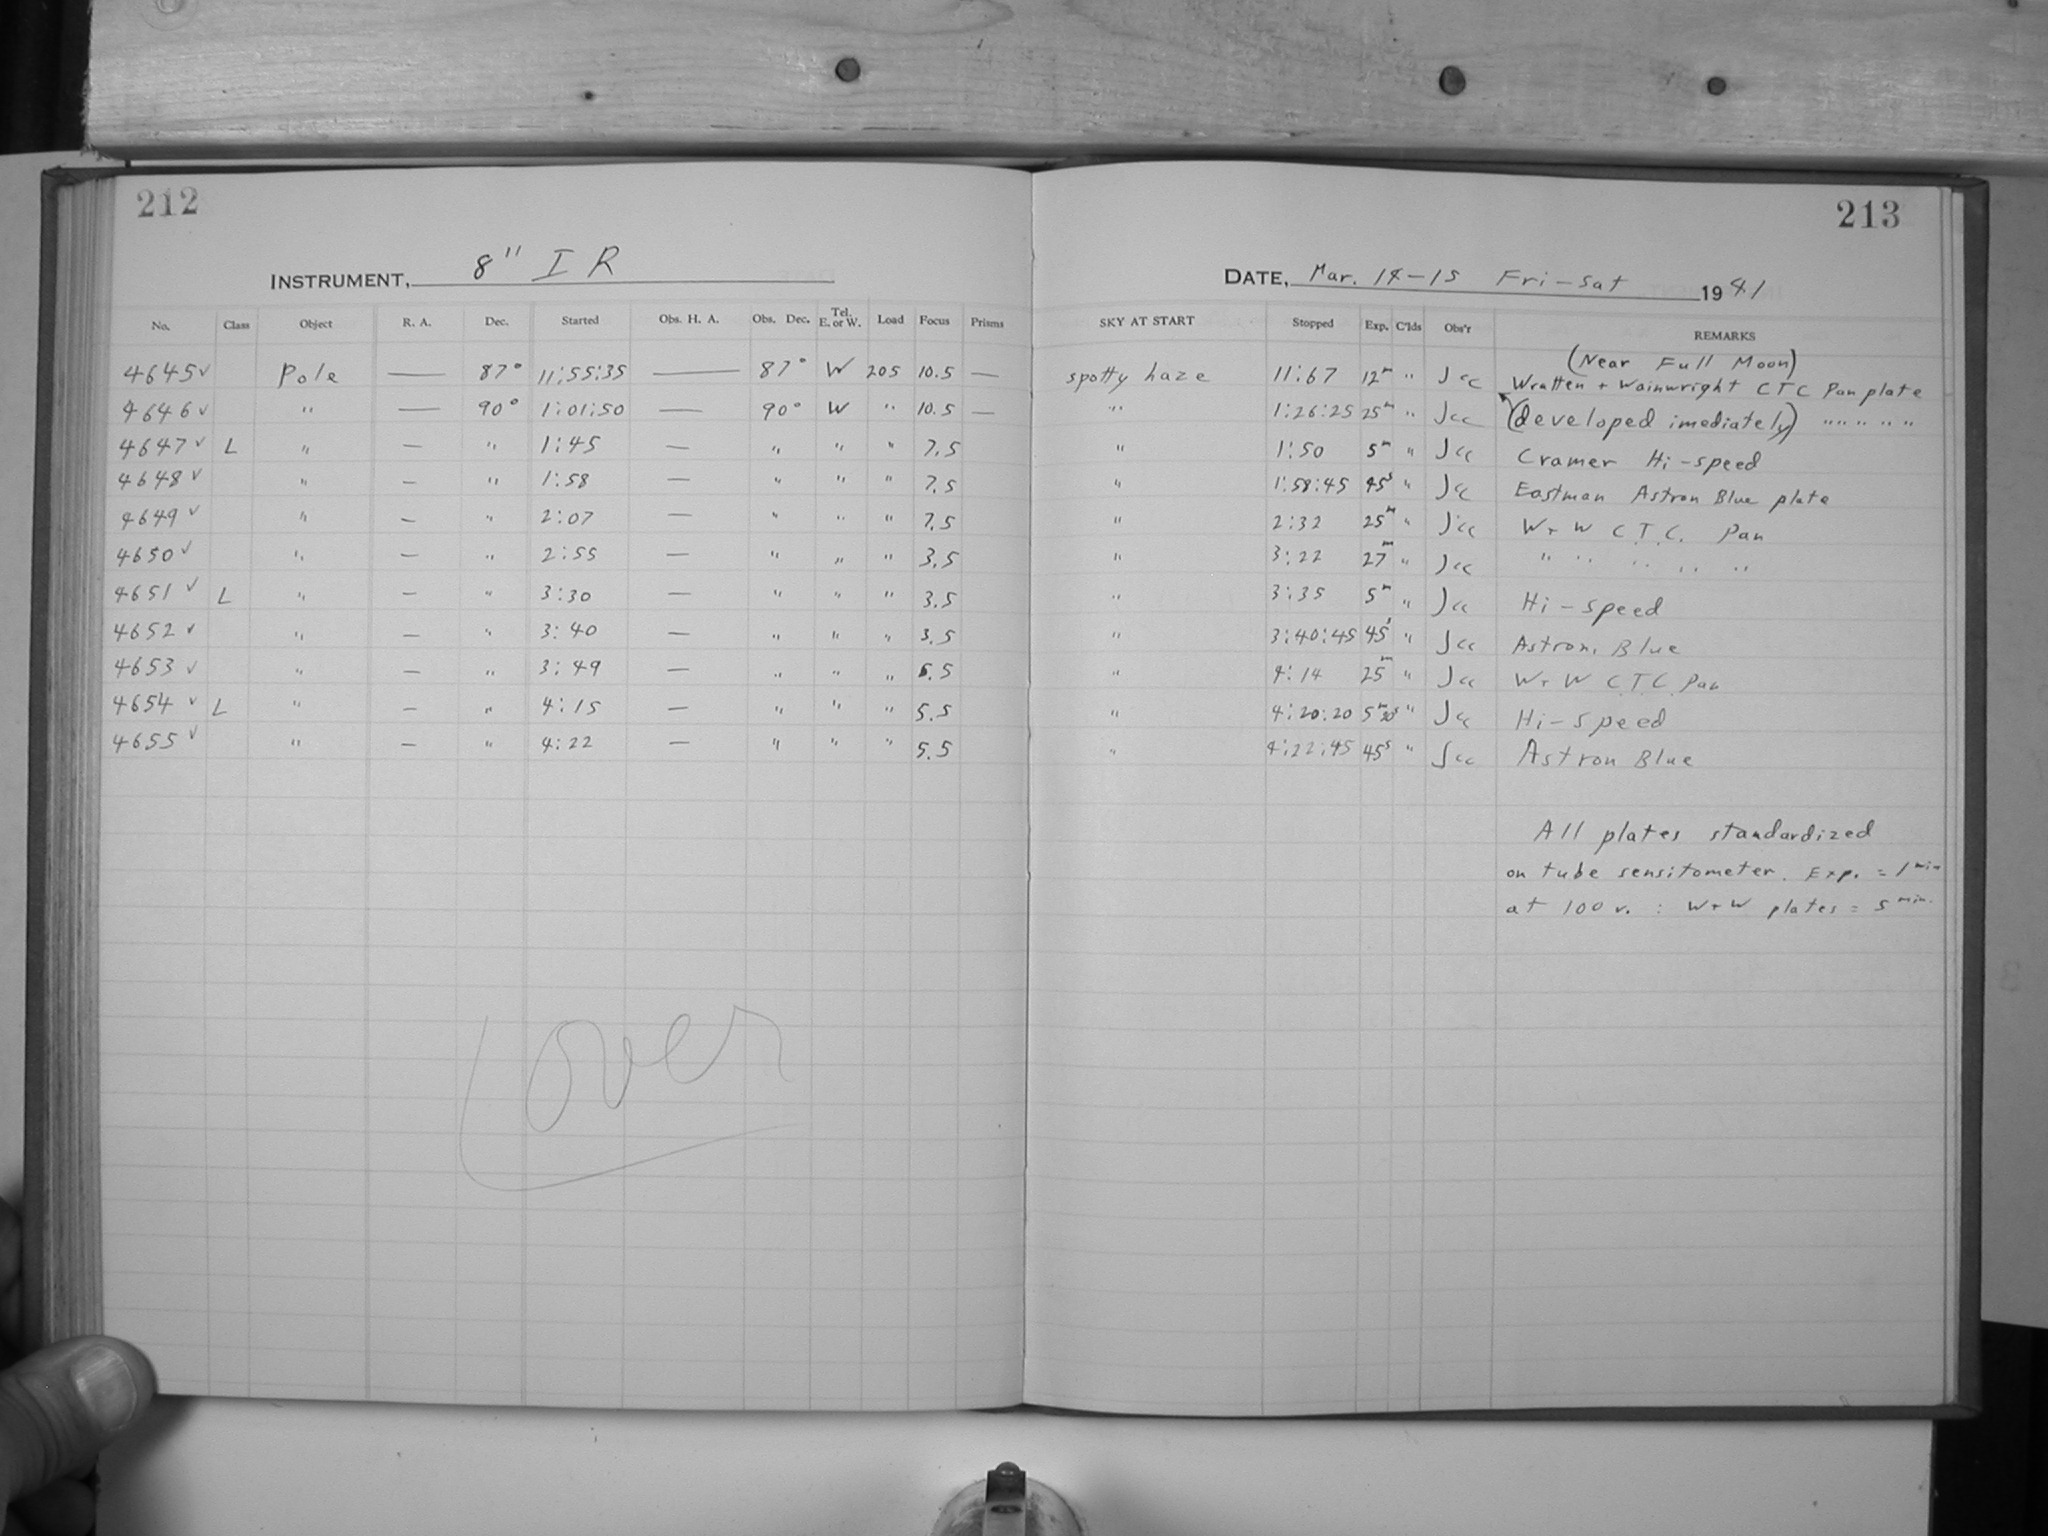 212
INSTRUMENT, 8" I R
No. Class Object R. A. Dec. Started Obs. H. A. Obs. Dec. Tel. E. or W. Load Focus Prisms
4645 ✓ Pole — 87° 11:55:35 — 87° W 205 10.5 —
4646 ✓ " — 90° 1:01:50 — 90° W " 10.5 —
4647 ✓ L " " 1:45 — " " " 7.5
4648 ✓ " — " 1:58 — " " " 7.5
4649 ✓ " — " 2:07 — " " " 7.5
4650 ✓ " — " 2:55 — " " " 3.5
4651 ✓ L " — " 3:30 — " " " 3.5
4652 ✓ " — " 3:40 — " " " 3.5
4653 ✓ " — " 3:49 — " " " 5.5
4654 ✓ L " — " 4:15 — " " " 5.5
4655 ✓ " — " 4:22 — " " " 5.5
Over
213
DATE, Mar. 14-15 Fri-Sat 1941
SKY AT START Stopped Exp. C'lds Obs'r REMARKS
(Near Full Moon)
spotty haze 11:67 12m " Jcc Wratten + Wainwright CTC Pan plate
" 1:26:25 25m " Jcc (developed imediately) " " " " "
" 1:50 5m " Jcc Cramer Hi-speed
" 1:58:45 45s " Jcc Eastman Astron Blue plate
" 2:32 25m " Jcc W+W C.T.C. Pan
" 3:22 27m " Jcc " " " " "
" 3:35 5m " Jcc Hi-speed
" 3:40:45 45s " Jcc Astron. Blue
" 4:14 25m " Jcc W+W C.T.C. Pan
" 4:20:20 5m20s " Jcc Hi-speed
" 4:22:45 45s " Jcc Astron Blue
All plates standardized
on tube sensitometer. Exp. = 1 min
at 100 v. : W+W plates = 5 min.